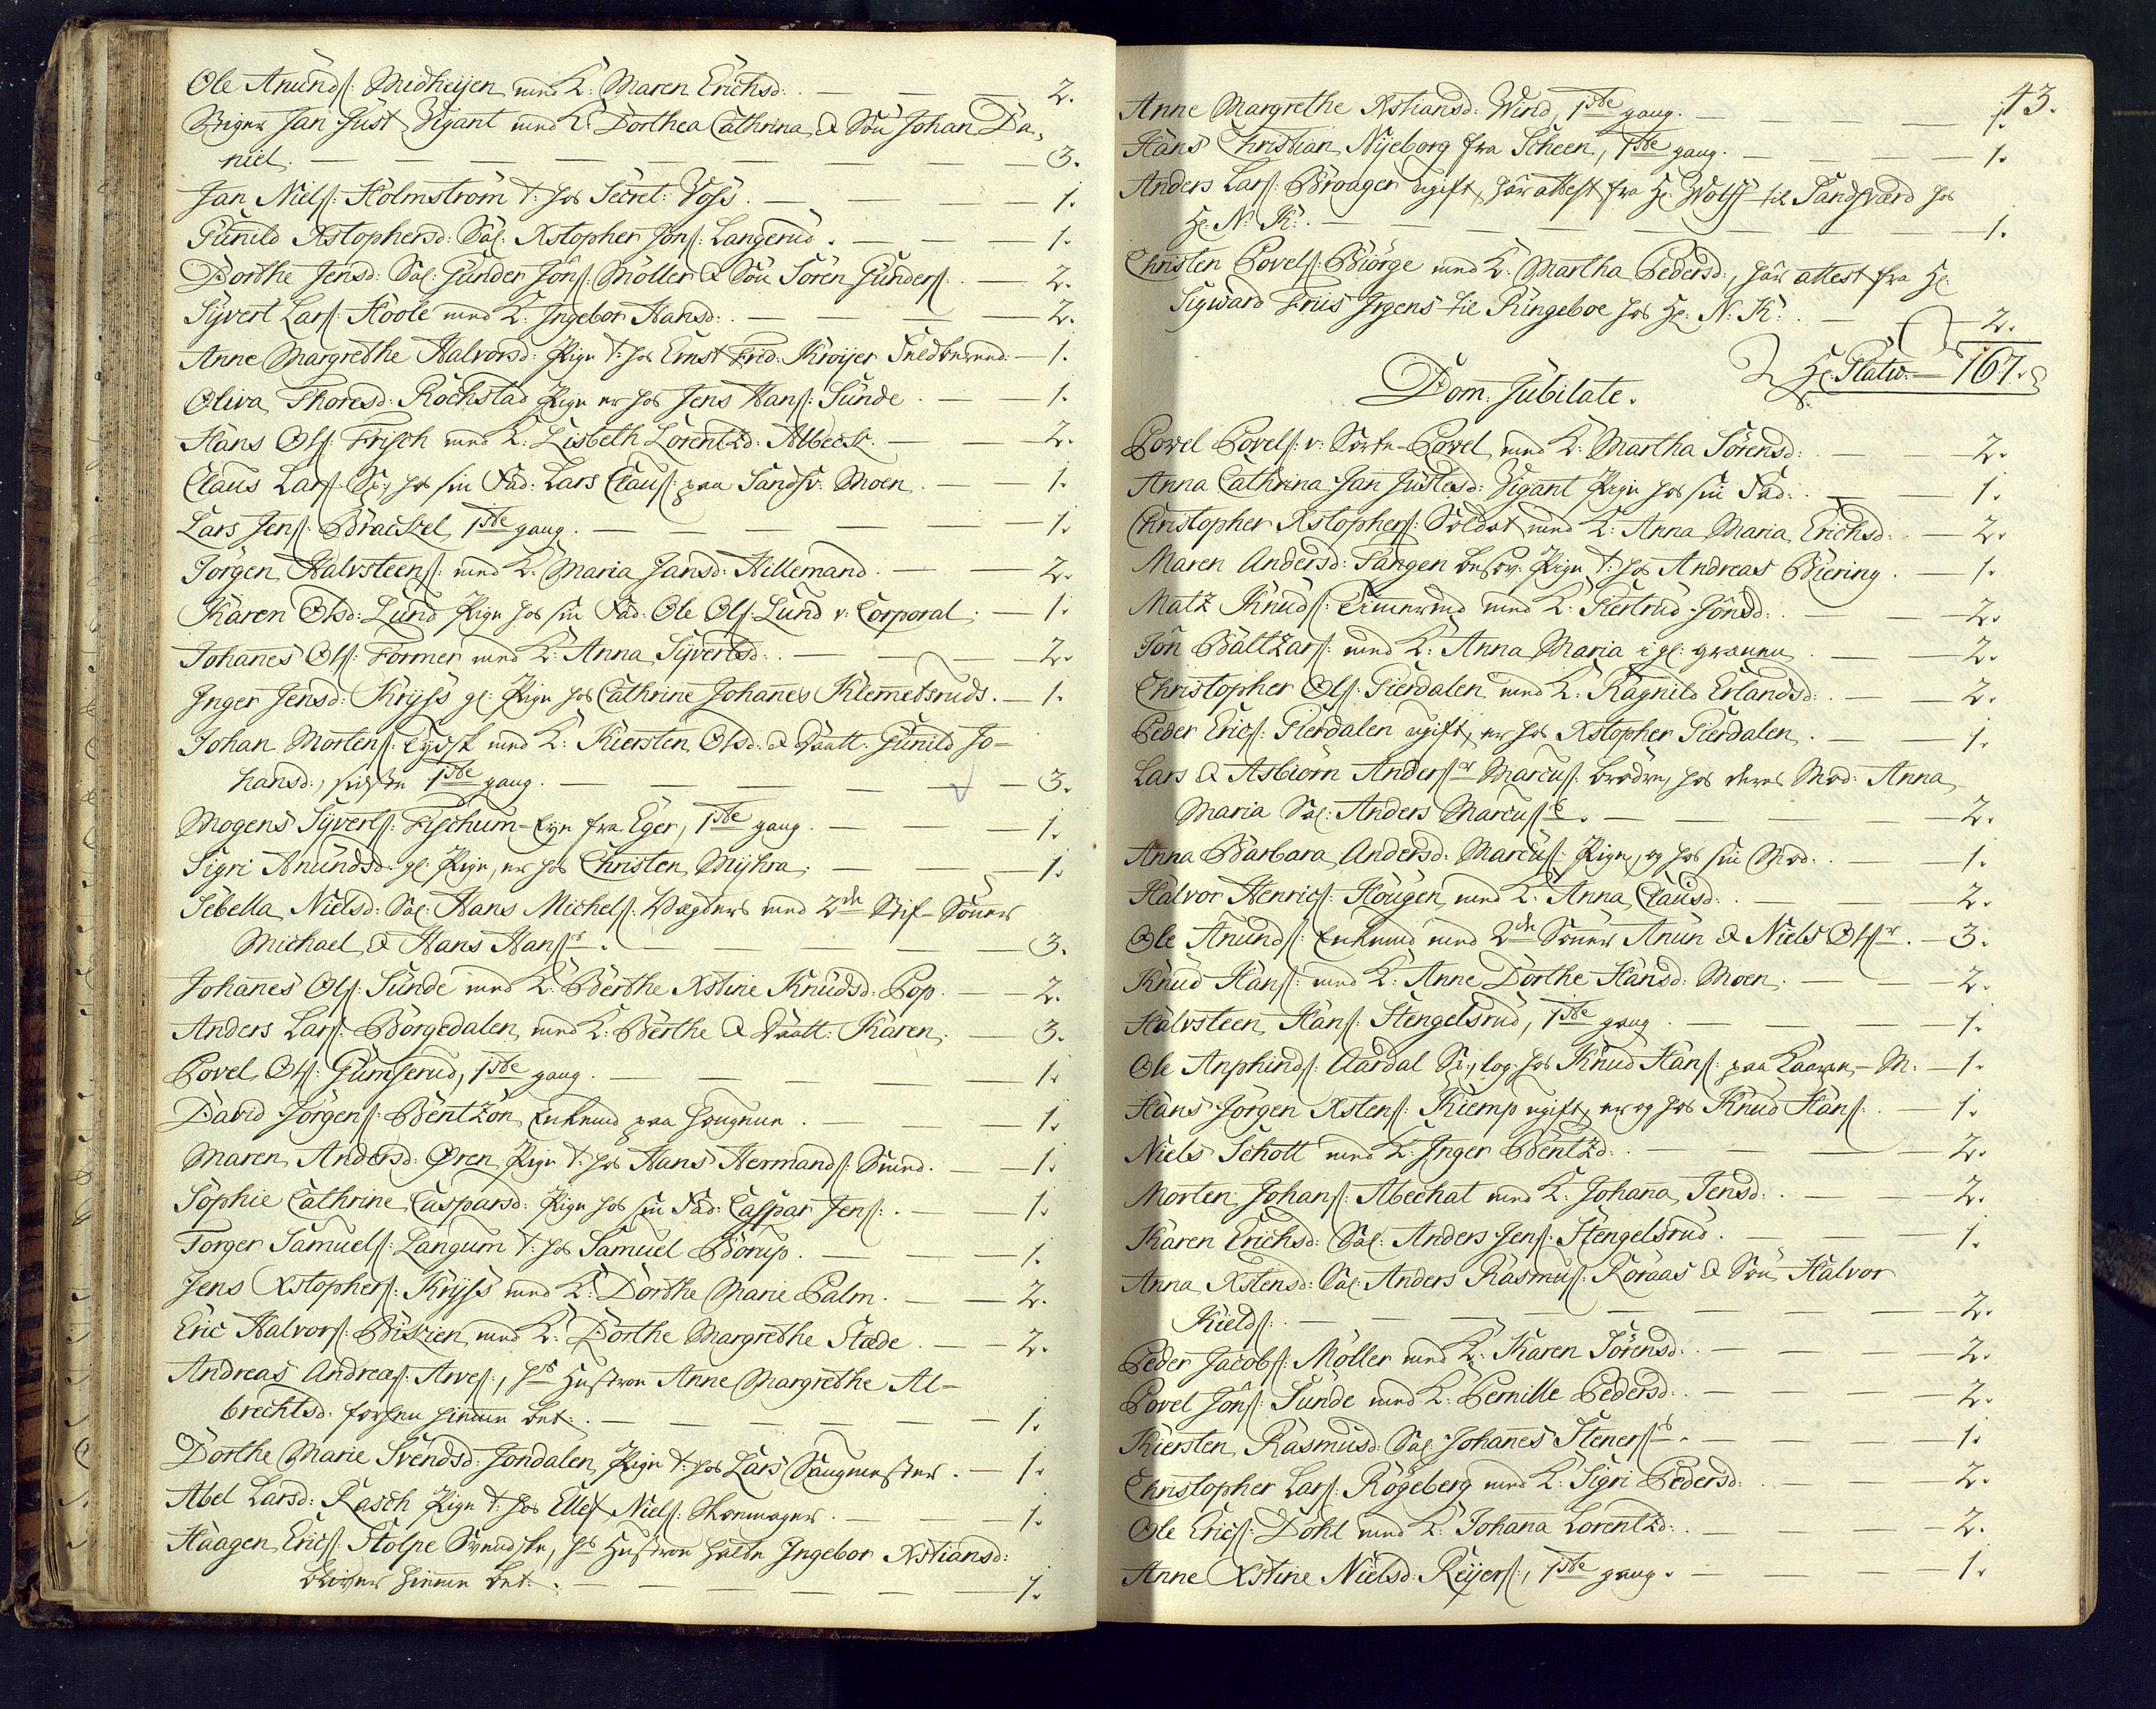 Ole Anunds: Midheijen med K: Maren Erichsd: — — — 2.
Stiger Jan Just Vigant med K: Dorthea Cathrina & Søn Johan Da-
niel. — — — 3.
Jan Niels: Holmstrøm t: hos Secret: Voss. — — — 1.
Gunild Xstophersd: Sal: Xstopher Jons: Langerud. — — — 1.
Dorthe Jensd: Sal: Gunder Jons: Møller & Søn Søren Gunders: — 2.
Syvert Lars: Hoole med K: Ingebor Hansd: — — — 2.
Anne Margrethe Halvorsd: Pige t: hos Ernst Frid: Krøijer Feldbered: — 1.
Oliva Thoresd: Rochstad Pige er hos Jens Hans: Sunde. — 1.
Hans Ols: Frisch med K: Lisbeth Lorentzd: Albeck. — 2.
Claus Lars: S:, hos sin Fad: Lars Claus: paa Sandsv: Moen. — 1.
Lars Jens: Brackel, 1ste gang. — — — 1.
Jørgen Halvsteens: med K: Maria Jansd: Hillemand. — — 2.
Karen Olsd: Lund Pige hos sin Fad: Ole Ols: Lund v: Corporal. — 1.
Johanes Ols: Former med K: Anna Syvertsd: — — — 2.
Inger Jensd: Kryss gl: Pige hos Cathrine Johannes Klemetsruds. — 1.
Johan Mortens: Tydsk med K: Kiersten Olsd: & Daatt: Gunild Jo-
hansd:, sidste 1ste gang. — — — 3.
Mogens Syverts: Fischum-Eije fra Eger, 1ste gang. — — 1.
Sigri Anundsd: gl: Pige, er hos Christen Myhra. — — 1.
Sebella Nielsd: Sal: Hans Michels: Vægters med 2de Stif-Sønner
Michael & Hans Hansr. — — — 3.
Johanes Ols: Sunde med K: Berthe Xstine Knudsd: Pop. — 2.
Anders Lars: Borgedalen med K: Berthe & Daatt: Karen. — 3.
Povel Ols: Gumserud, 1ste gang. — — — 1.
David Jørgens: Bentzon Enkemd paa Hougene. — — 1.
Maren Andersd: Øren Pige t: hos Hans Hermands: Smed. — 1.
Sophie Cathrine Caspersd: Pige hos sin Fad: Caspar Jens: — 1.
Torger Samuels: Langum t: hos Samuel Borup. — — 1.
Jens Xstophers: Kryss med K: Dorthe Marie Palm. — 2.
Eric Halvors: Biskien med K: Dorthe Margrethe Stæde. — 2.
Andreas Andreas: Arves:, hs Hustroe Anne Margrethe Al-
brechtsd: forhen hiemme bet: — — — 1.
Dorthe Marie Svendsd: Jondalen Pige t: hos Lars Saugmester. — 1.
Abel Larsd: Rasch Pige t: hos Ellef Niels: Skoemager. — — 1.
Haagen Erics: Stolpe Svendske, hs Hustroe Ingebor Xstiansd:
bliver hiemme bet: — — — 1.
43.
Anne Margrethe Xstiansd: Wind, 1ste gang. — — — 1.
Hans Christian Nyeborg fra Scheen, 1ste gang. — — — 1.
Anders Lars: Broager ugift, har attest fra Hr: Wolff til Sandsværd hos
Hr: N: K: — — — 1.
Christen Povels: Biørge med K: Martha Pedersd:, har attest fra Hr:
Sigward Friis Irgens til Ringeboe hos Hr: N: K: — 2.
Hr: Platu — 167.
Dom: Jubilate.
Povel Povels: v: Sorte-Povel med K: Martha Sørensd: — — 2.
Anna Cathrina Jan Justesd: Vigant Pige hos sin Fad: — — 1.
Christopher Xstophers: Soldat med K: Anna Maria Erichsd: — 2.
Maren Andersd: Tangen besov: Pige t: hos Andreas Biering. — 1.
Matz Knuds: Timered med K: Giertrud Jonsd: — — 2.
Jon Baltzars: med K: Anna Maria i gl: — — 2.
Christopher Ols: Gierdalen med K: Ragnild Erlandsd: — 2.
Peder Erics: Gierdalen ugift, er hos Xstopher Gierdalen. — — 1.
Lars & Asbiørn Andersr Marcus: brødre, hos deres Mod: Anna
Maria Sal: Anders Marcuss. — — — 2.
Anna Barbara Andersd: Marcus: Pige, og hos sin Mod: — 1.
Halvor Henrics: Hougen med K: Anna Clausd: — — 2.
Ole Anunds: Enkemd med 2de Sønner Anun & Niels Olsr. — 3.
Knud Hans: med K: Anne Dorthe Hansd: Moen. — — 2.
Halvsteen Hans: Stengelsrud, 1ste gang. — — — 1.
Ole Anphinds: Aardal S:, log: hos Knud Hans: paa Laaven-M: — 1.
Hans Jørgen Xstens: Kiemp ugift, er og hos Knud Hans: — 1.
Niels Schott med K: Inger Bentzd: — — — 2.
Morten Johans: Abechat med K: Johana Jensd: — — 2.
Karen Erichsd: Sal: Anders Jens: Stengelsrud. — — 1.
Anna Xstensd: Sal: Anders Rasmus: Roraas & Søn Halvor
Kields: — — — 2.
Peder Jacobs: Møller med K: Karen Sørensd: — — 2.
Povel Jons: Sunde med K: Pernille Pedersd: — — 2.
Kiersten Rasmusd: Sal: Johanes Steners: — — 1.
Christopher Lars: Rogeberg med K: Sigri Pedersd: — 2.
Ole Erics: Dohl med K: Johana Lorentzd: — — 2.
Anne Xstine Nielsd: Reyers:, 1ste gang. — — — 1.